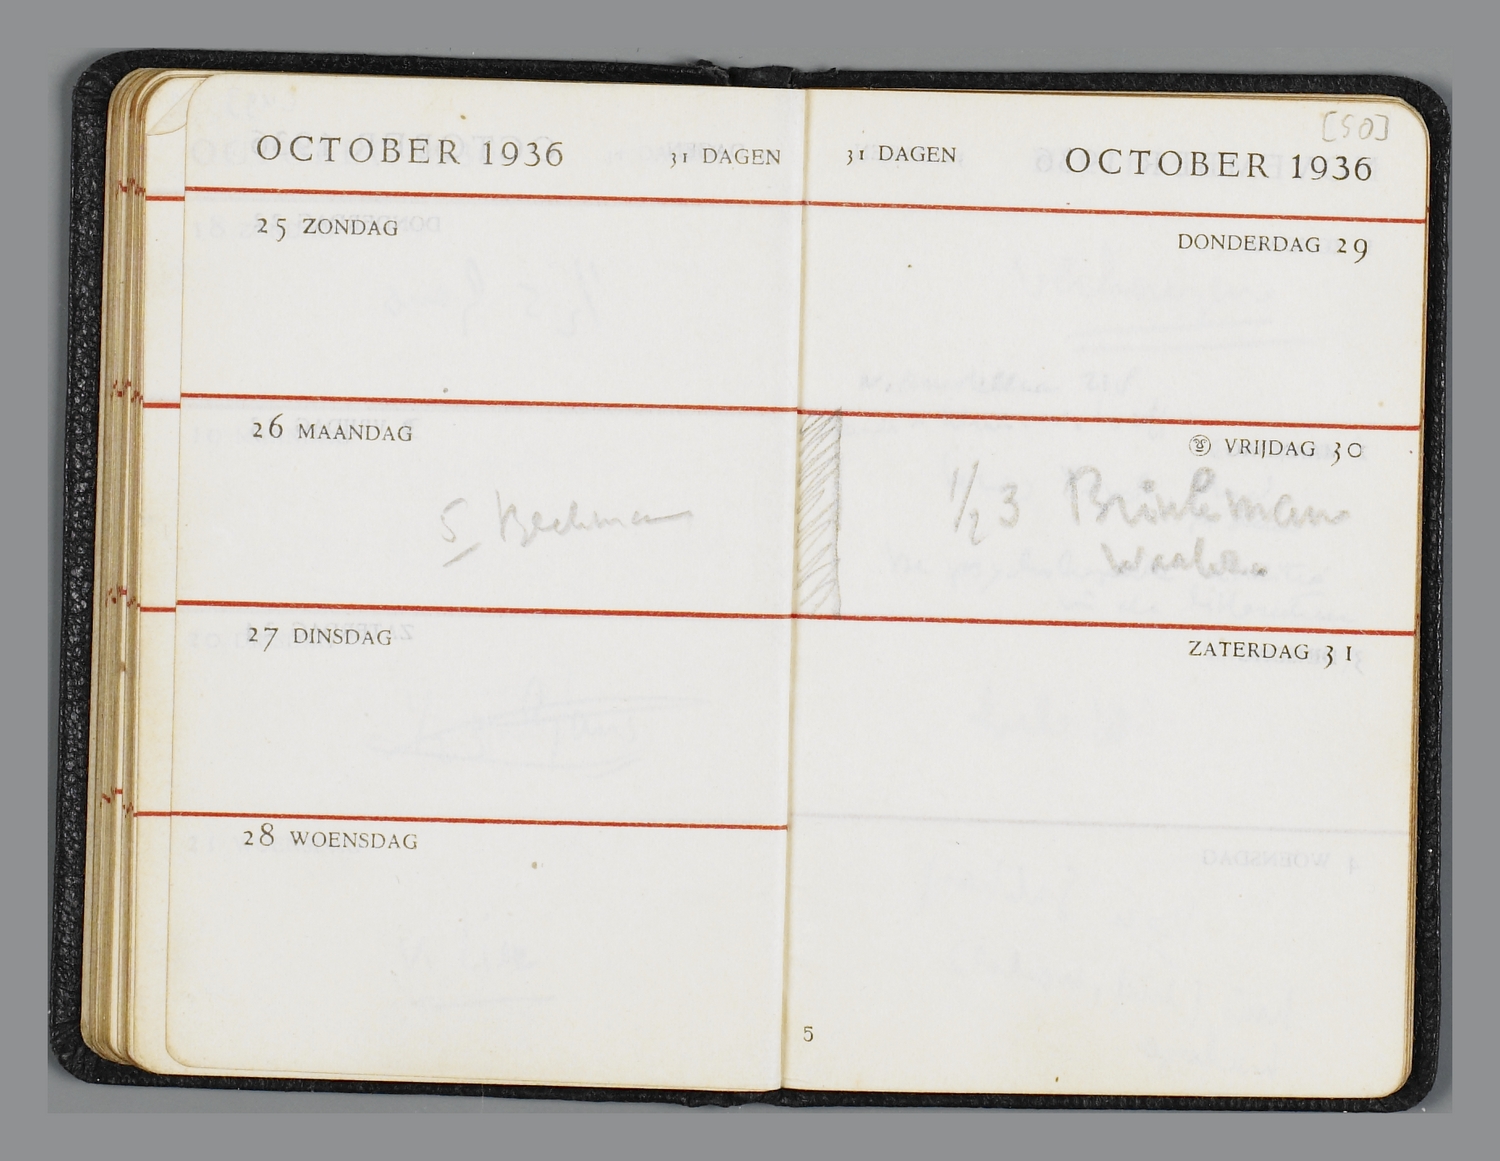 OCTOBER 1936 31 DAGEN
25 ZONDAG
26 MAANDAG
5 Beckmann
27 DINSDAG
28 WOENSDAG
[50]
31 DAGEN OCTOBER 1936
DONDERDAG 29
VRIJDAG 30
1/2 3 Brinkman
ZATERDAG 31
5